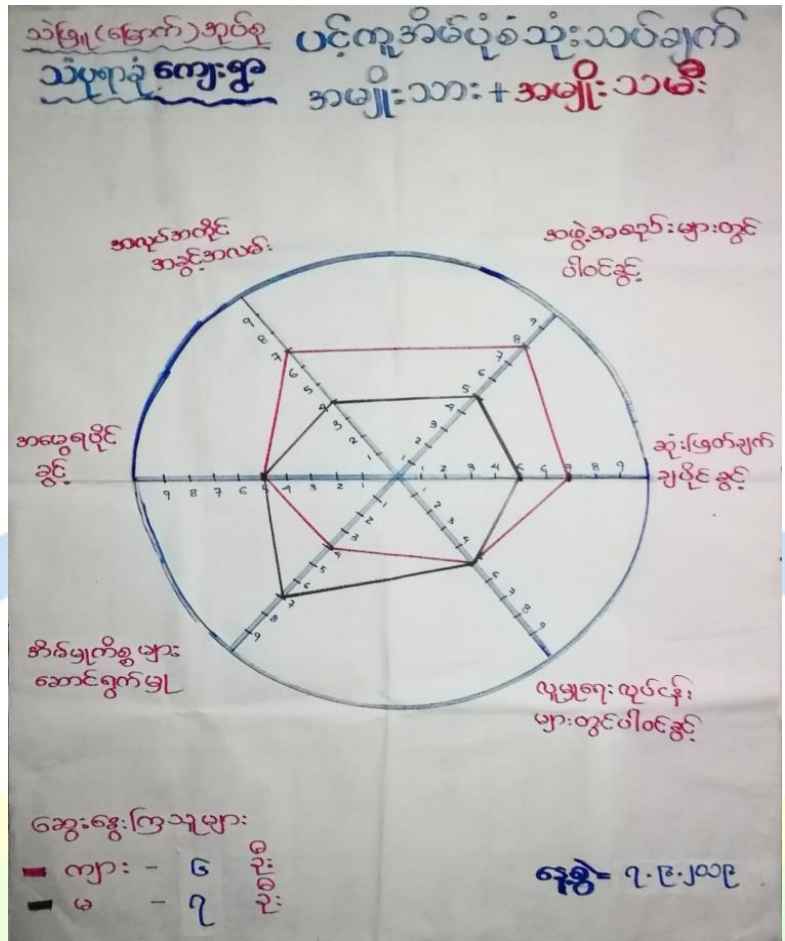 သဲဖြူ(မြောက်)အုပ်စု
သံပုရာခုံ ကျေးရွာ
ပင့်ကူအိမ်ပုံစံသုံးသပ်ချက်
အမျိုးသား+အမျိုးသမီး
အလုပ်အကိုင်
အခွင့်အလမ်း
အဖွဲ့အစည်းများတွင်
ပါဝင်ခွင့်
အမွေရပိုင်
ခွင့်
ဆုံးဖြတ်ချက်
ချပိုင်ခွင့်
အိမ်မှုကိစ္စများ
ဆောင်ရွက်မှု
လူမှုရေးလုပ်ငန်း
များတွင်ပါဝင်ခွင့်
ဆွေးနွေးကြသူများ
ကျား - ၆ ဦး
မ - ၇ ဦး
နေ့စွဲ= ၇.၉.၂၀၁၉